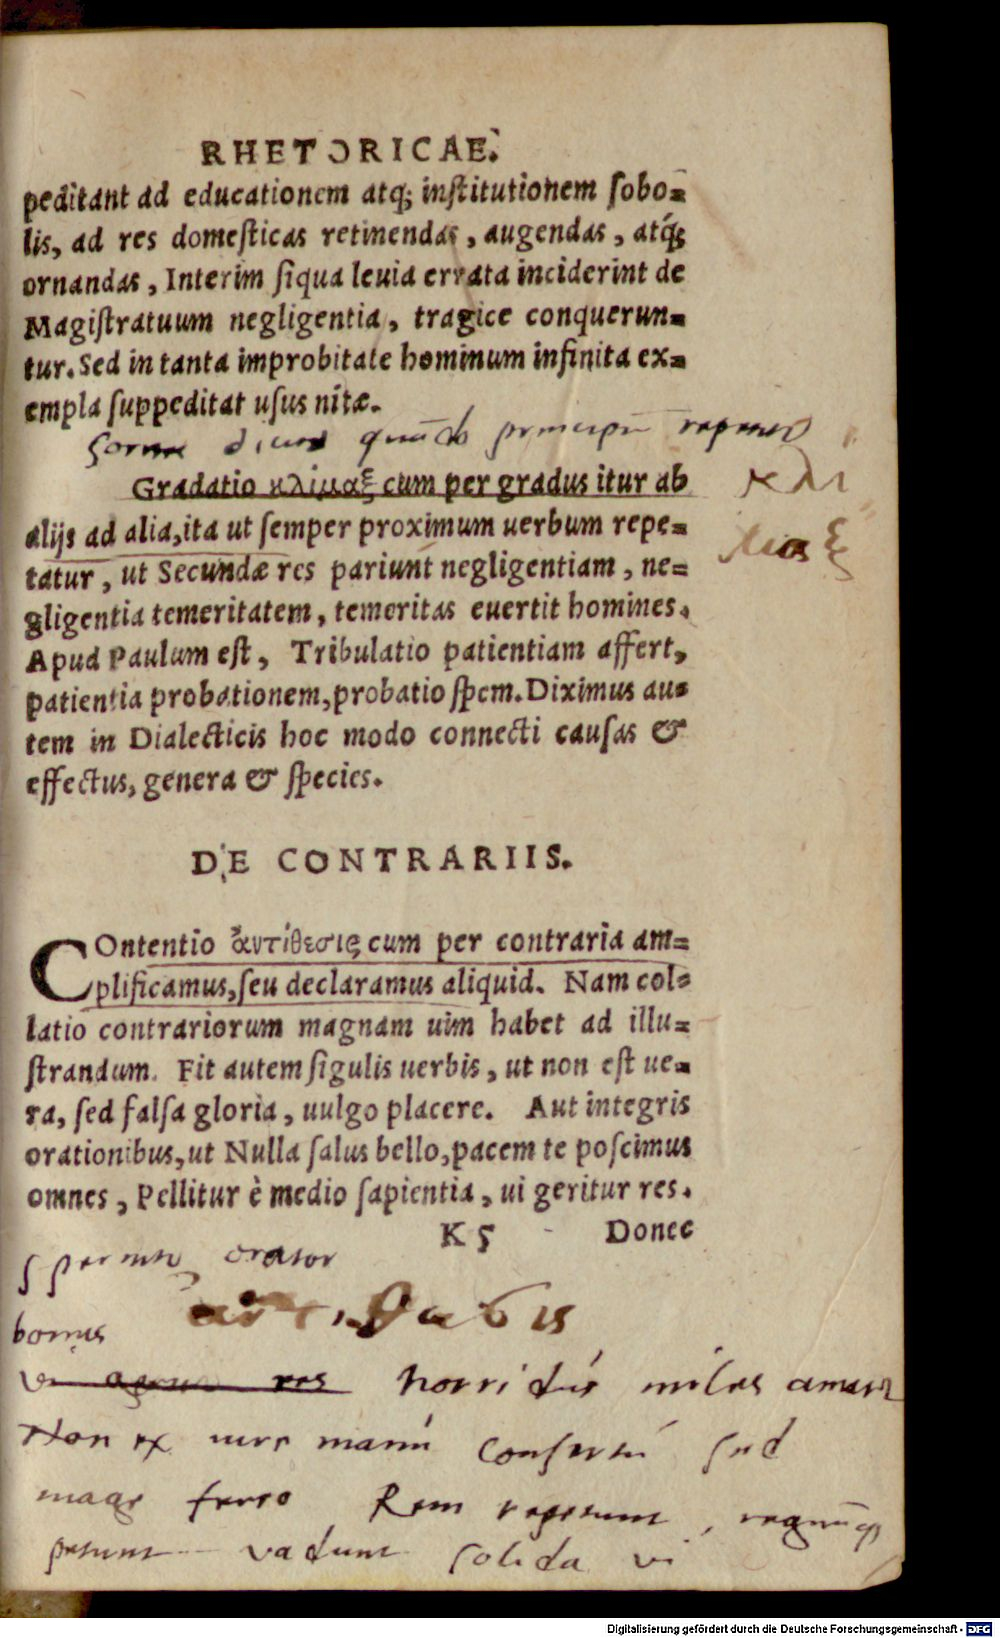 RHETORICAE.
peditant ad educationem atq; institutionem sobo=
lis, ad res domesticas retinendas, augendas, atq́;
ornandas, Interim siqua leuia errata inciderint de
Magistratuum negligentia, tragice conquerun=
tur. Sed in tanta improbitate hominum infinita ex=
empla suppeditat usus uitæ.
principū
Gradatio κλίμαξ cum per gradus itur ab
κλι
alijs ad alia, ita ut semper proximum uerbum repe=
μαξ
tatur, ut Secundæ res pariunt negligentiam, ne=
gligentia temeritatem, temeritas euertit homines.
Apud Paulum est, Tribulatio patientiam affert,
patientia probationem, probatio spem. Diximus au=
tem in Dialecticis hoc modo connecti causas &
effectus, genera & species.
DE CONTRARIIS.
COntentio ἀντίθεσις cum per contraria am=
plificamus, seu declaramus aliquid. Nam col=
latio contrariorum magnam uim habet ad illu=
strandum. Fit autem sigulis uerbis, ut non est ue=
ra, sed falsa gloria, uulgo placere. Aut integris
orationibus, ut Nulla salus bello, pacem te poscimus
omnes, Pellitur è medio sapientia, ui geritur res.
K 5 Donec
spernit orator
bonus
vi res horridus miles amatur
Non ex iure manū consertū sed
mage ferro Rem repetunt, regnūq;
petunt vadunt solida vi